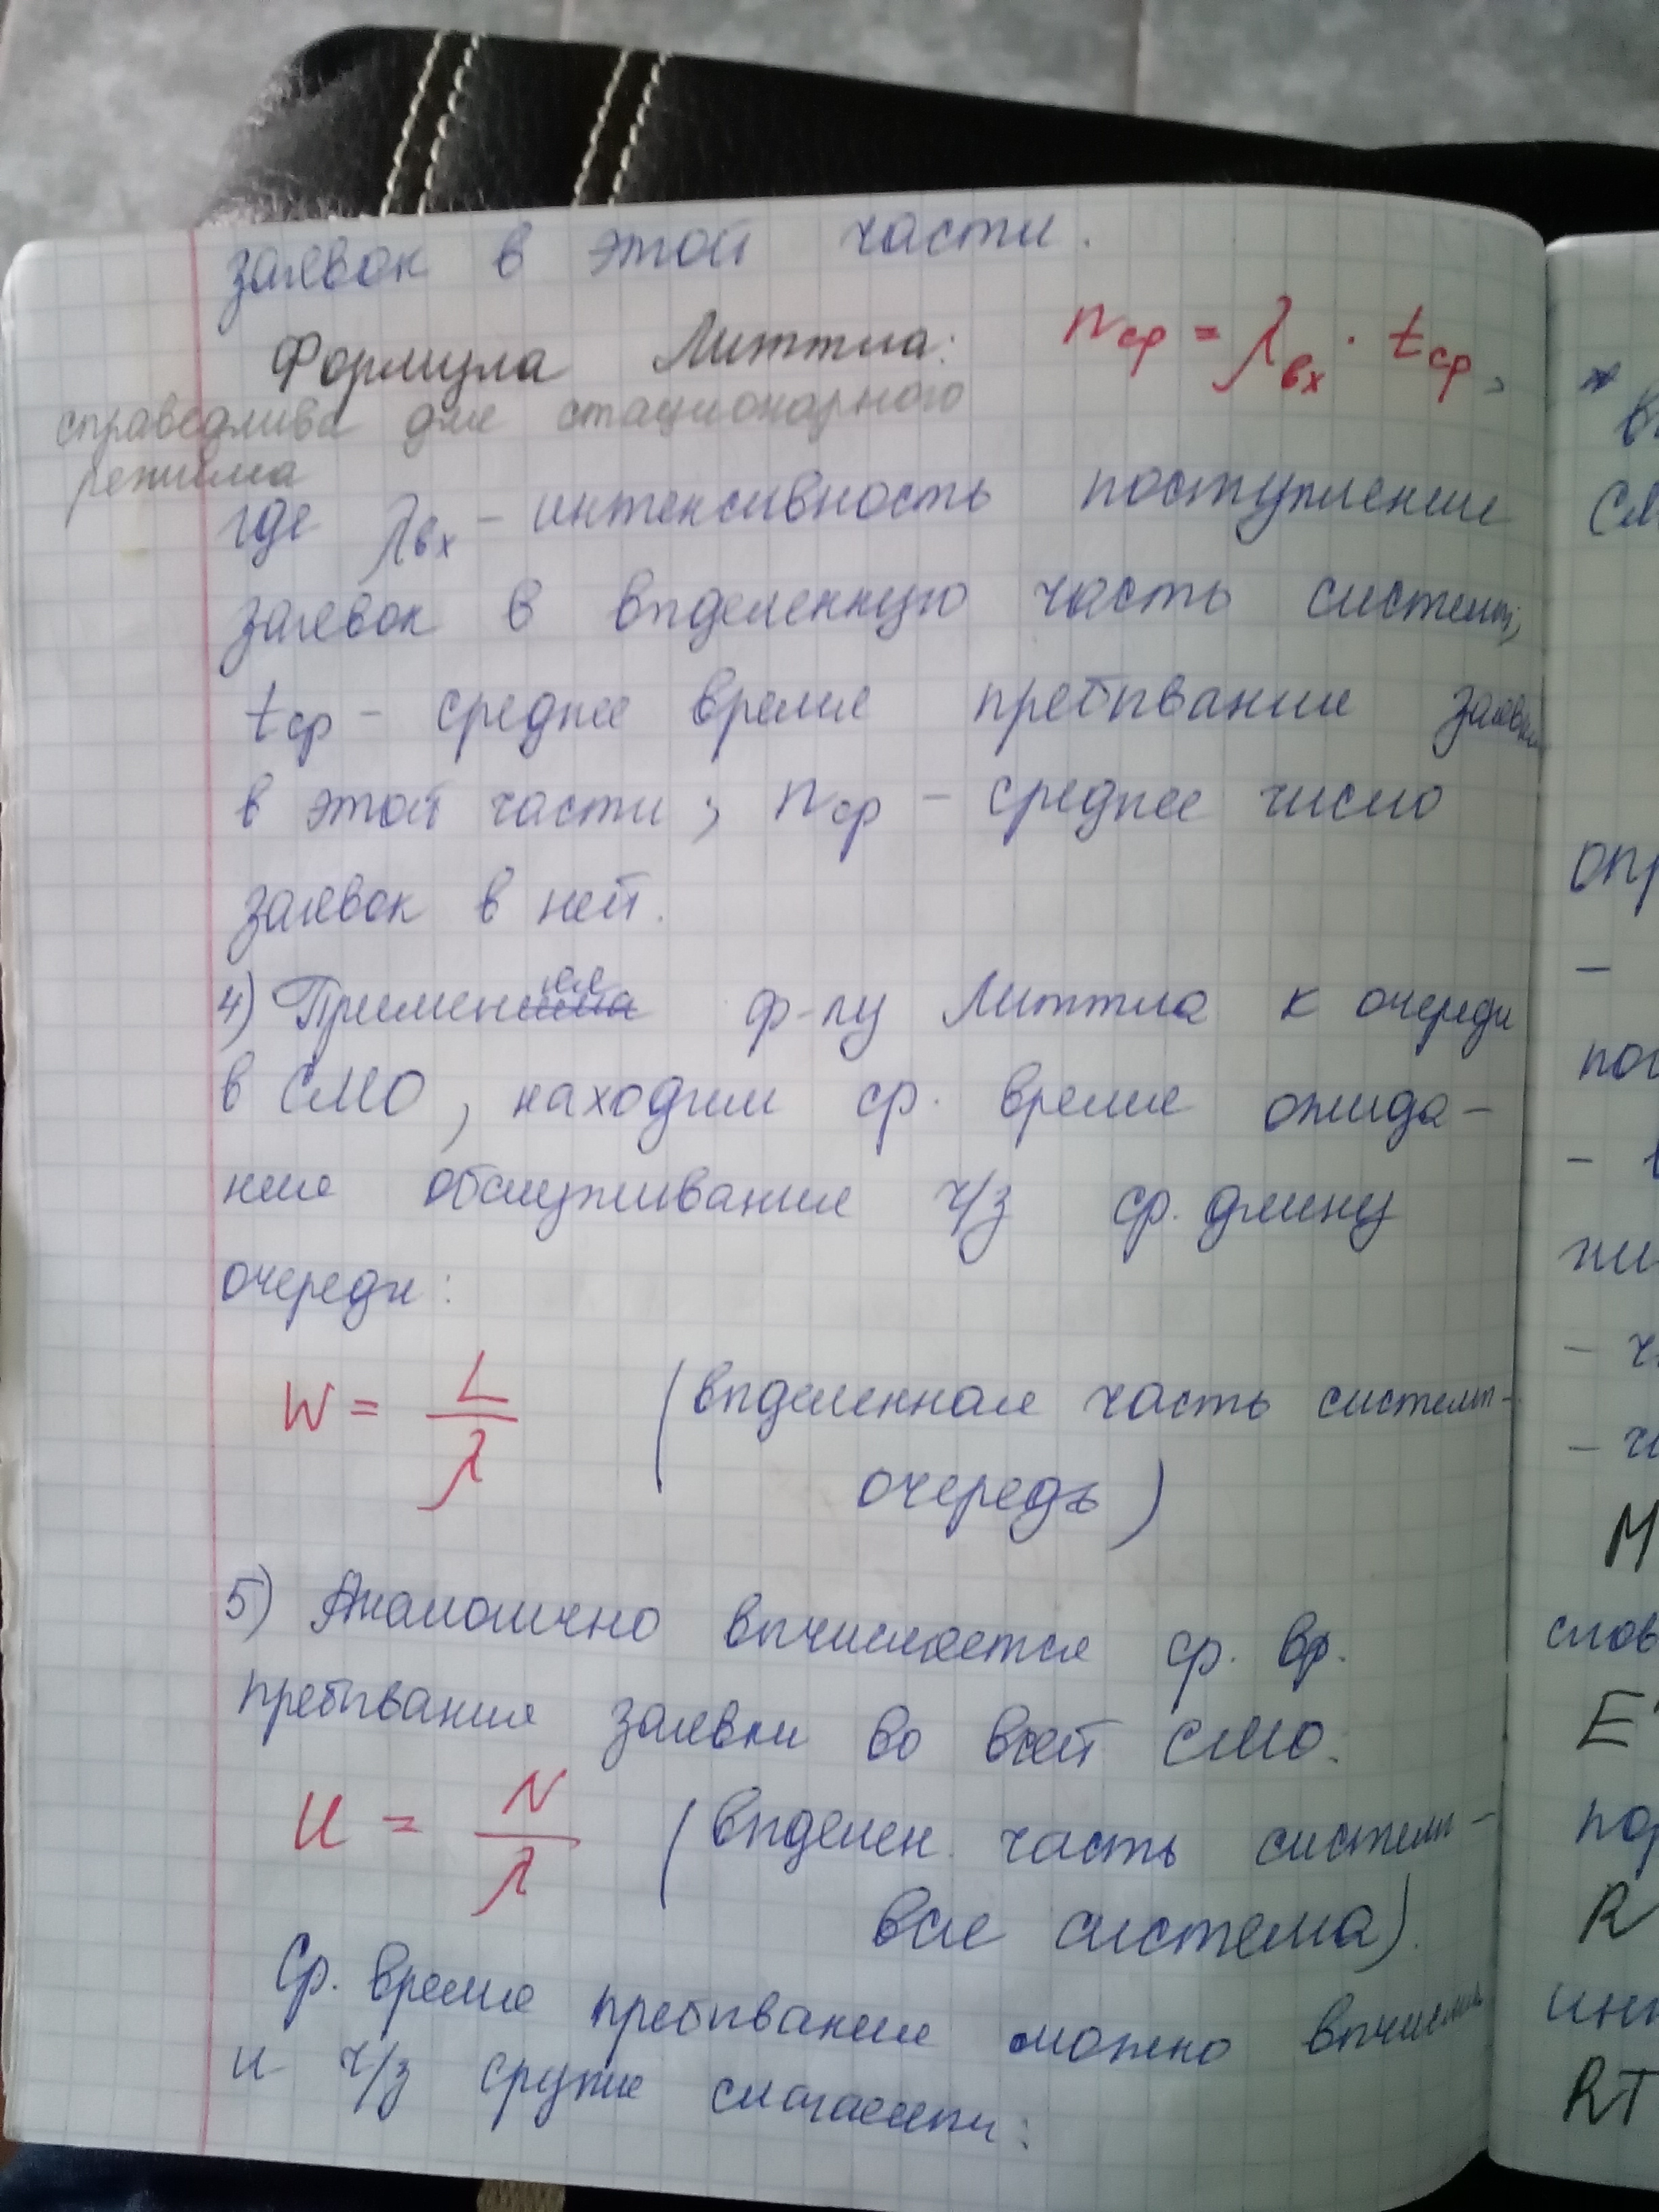 заявок в этой части.
Формула Литтла: nср = λвх · tср,
справедлива для стационарного
режима
где λвх – интенсивность поступления
заявок в выделенную часть системы;
tср – среднее время пребывания заявки
в этой части; nср – среднее число
заявок в ней.
4) Применяя ф-лу Литтла к очереди
в СМО, находим ср. время ожида-
ния обслуживания ч/з ср. длину
очереди:
W = L/λ (выделенная часть системы-
очередь)
5) Аналогично вычисляется ср. вр.
пребывания заявки во всей СМО:
U = N/λ (выделен. часть системы-
вся система).
Ср. время пребывания можно вычислить
и ч/з другие слагаемые:
*
В
СМ
опр
–
пос
–
жи
– ч
– ч
М
слов
E
пор
R
инт
RT